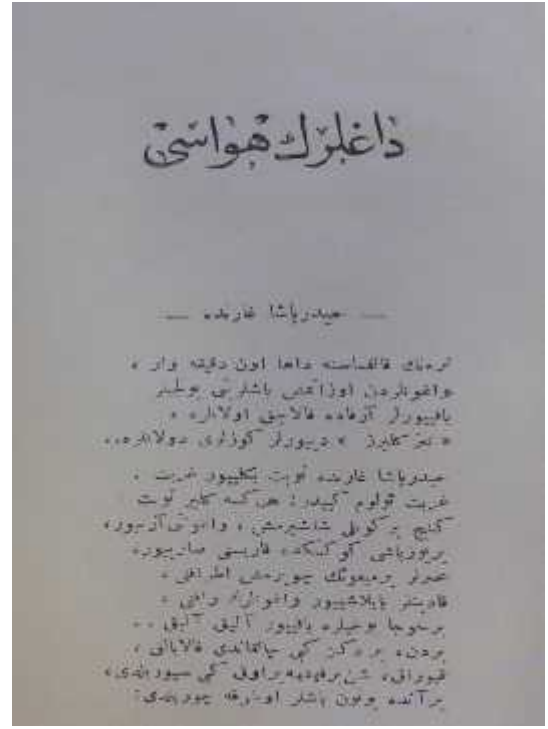 داغلرك هواسى
— حيدرپاشا غارنده —
ترەنك قالقماسنه داها اون دقيقه وار ،
واغونلردن اوزاتمش باشلرينى يولجیلر
باقيورلر آرقاده قالاجق اولانلره ،
« تيز كليرز » دييورلر كوزلرى دولانلره..
حيدرپاشا غارنده نوبت بكلييور غربت .
غربت ئولوم كيبدر: هركسه كلير نوبت
كنج بر كويلى شاشيرمش ، واغونى آرييور،
بر يوزباشى كوكسكده قاريسنى صارييور،
بر مبعوثك چويرمش اطرافنى ،
قادينلر پايلاشييور واغونلرك رافنى ،
بر خوجا بوجلره باقييور آليق آليق ..
بردن، بر دكز كى چالقاندى قالابالق ،
بر آنده بوتون باشلر اوطرفه چوريلدى: